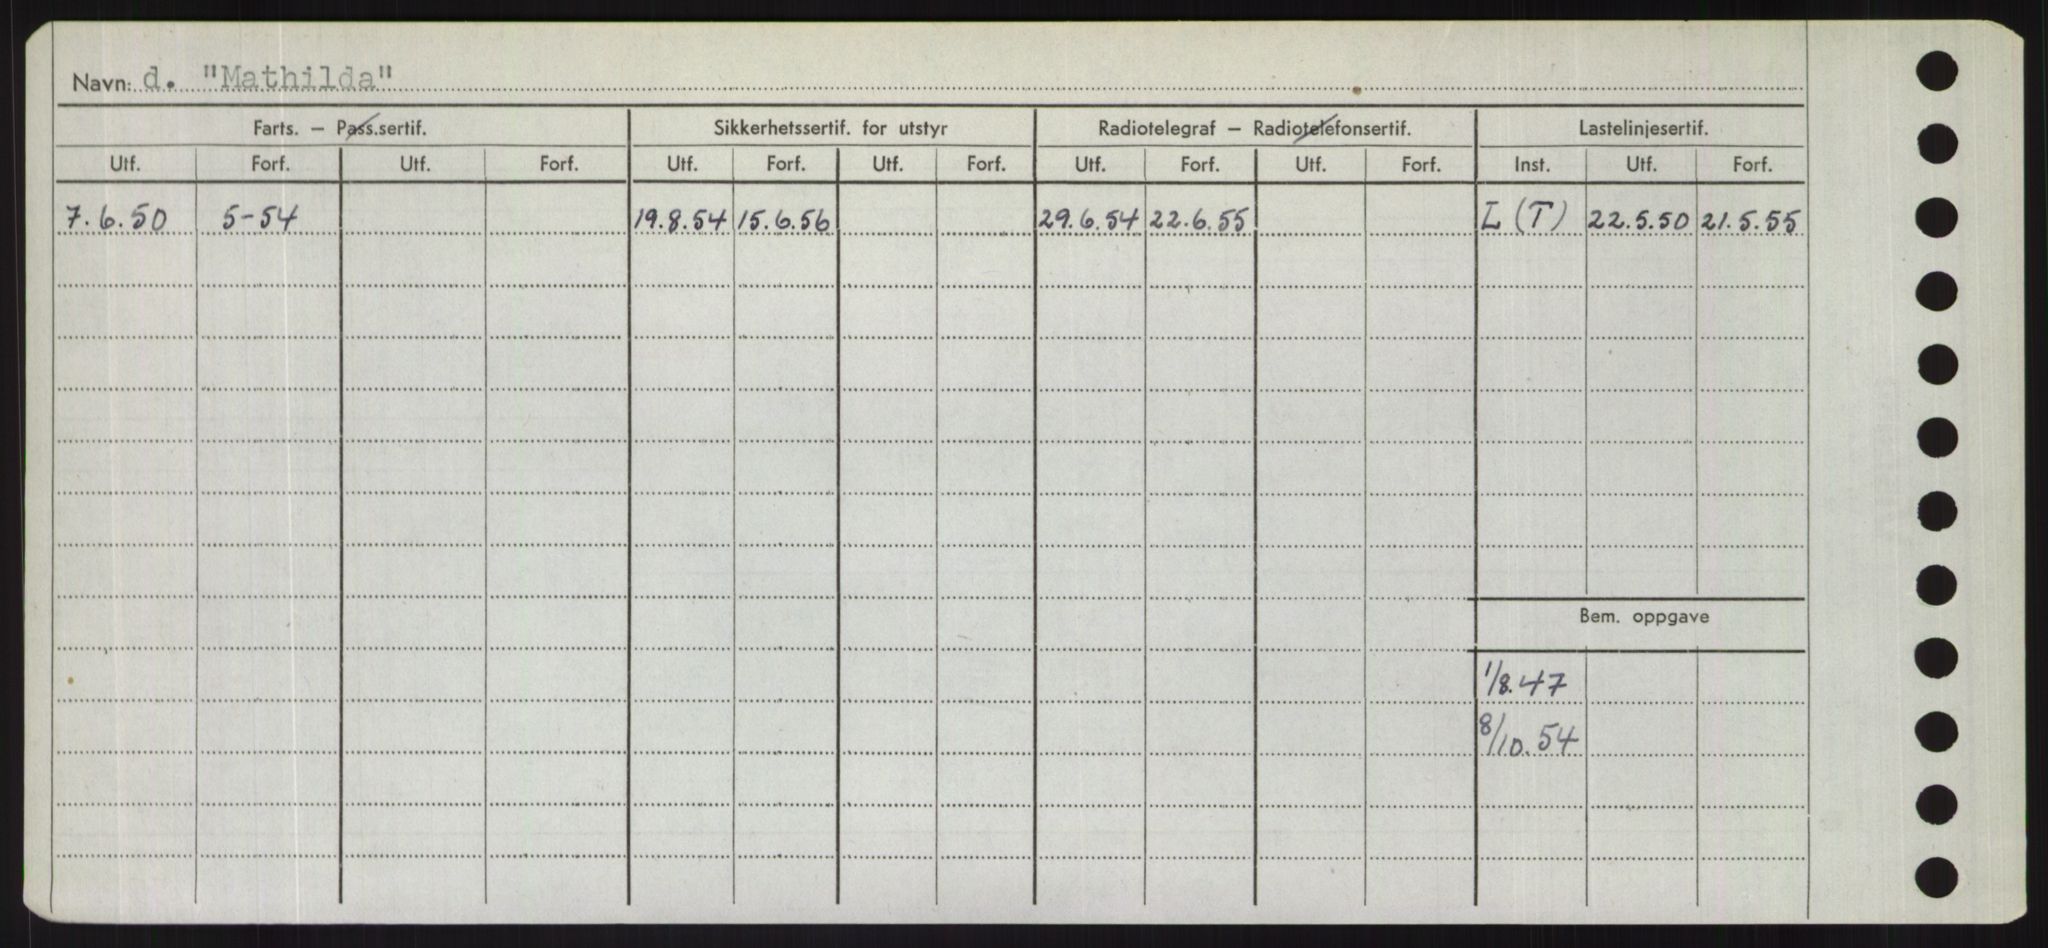 Navn: d. "Mathilda"
Farts. – Pass.sertif. Sikkerhetssertif. for utstyr Radiotelegraf – Radiotelefonsertif. Lastelinjesertif.
Utf. Forf. Utf. Forf. Utf. Forf. Utf. Forf. Utf. Forf. Utf. Forf. Inst. Utf. Forf.
7.6.50 5-54 19.8.54 15.6.56 29.6.54 22.6.55 L (T) 22.5.50 21.5.55
Bem. oppgave
1/8.47
8/10.54